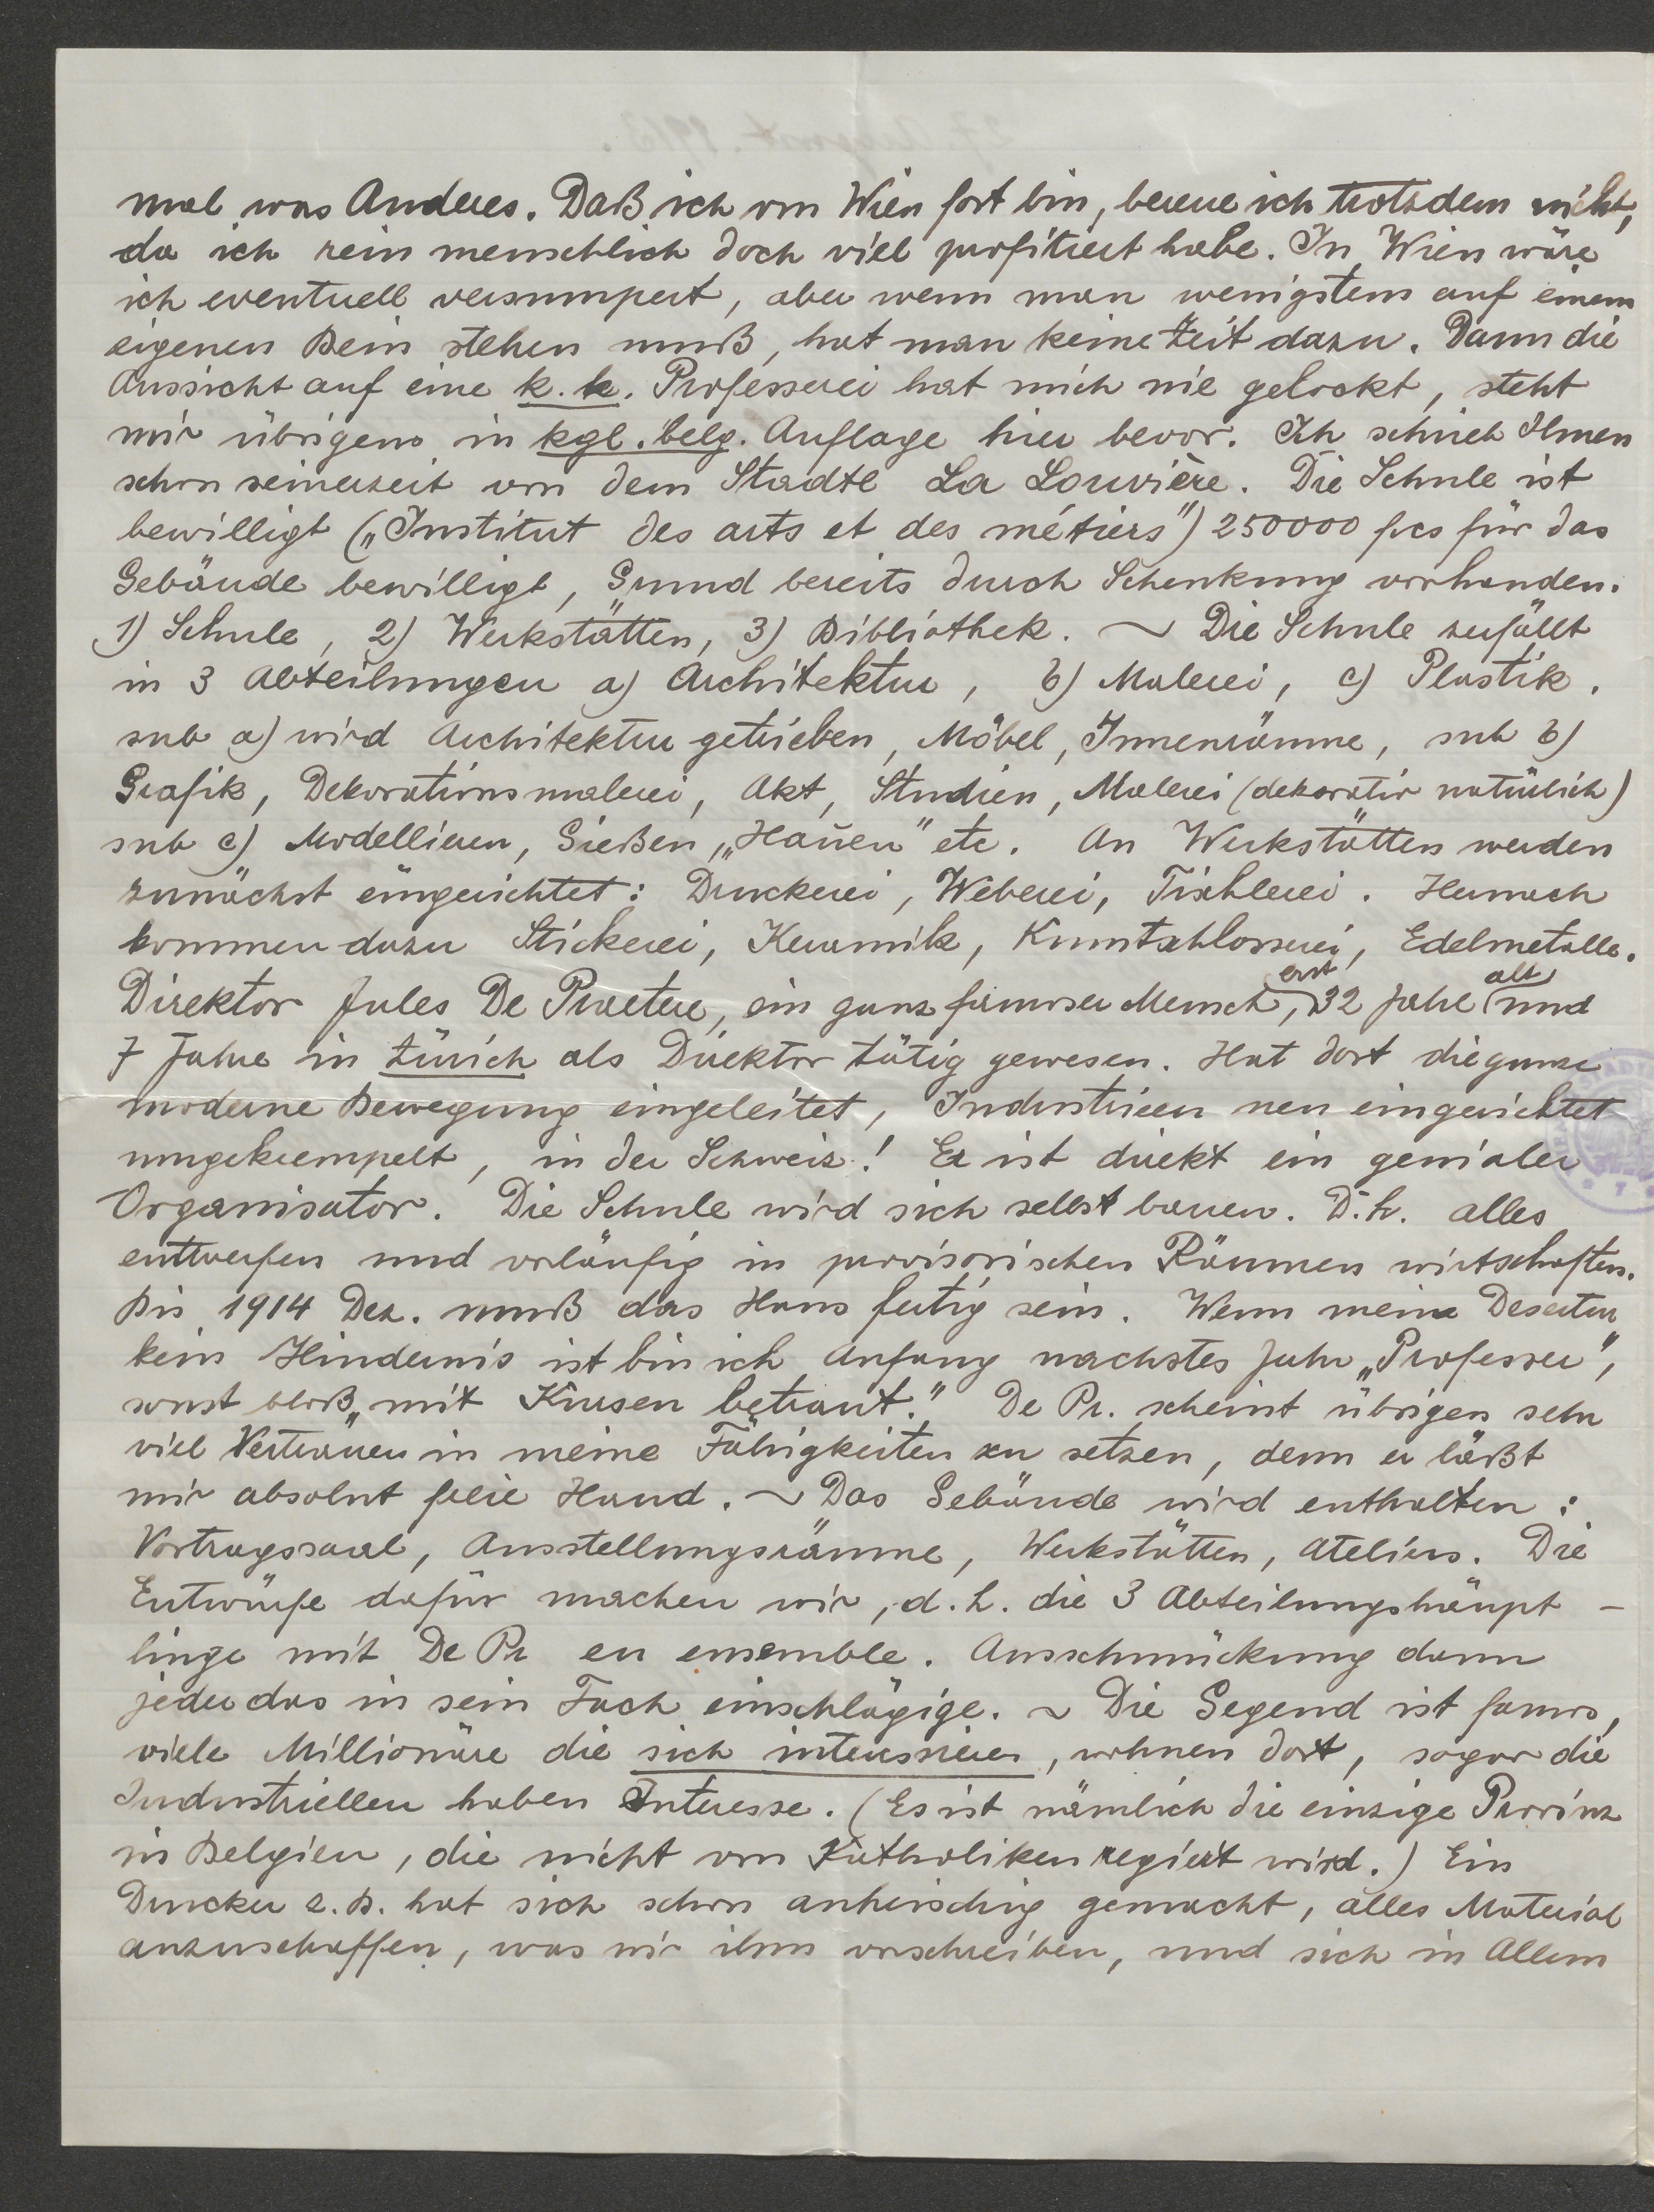 mal was Anderes. Daß ich von Wien fort bin, bereue ich trotzdem nicht,
da ich rein menschlich doch viel profitiert habe. In Wien wäre
ich eventuell versumpert, aber wenn man wenigstens auf einem
eigenen Bein stehen muß, hat man keine Zeit dazu. Dann die
Aussicht auf eine k. k. Professerei hat mich nie gelockt, steht
mir übrigens in kgl. belg. Auflage hier bevor. Ich schrieb Ihnen
schon seinerzeit von dem Stadtl La Louvière. Die Schule ist
bewilligt („Institut des arts et des métiers") 250000 fcs für das
Gebäude bewilligt, Grund bereits durch Schenkung vorhanden.
1) Schule, 2) Werkstätten, 3) Bibliothek. ~ Die Schule zerfällt
in 3 Abteilungen a) Architektur, b) Malerei, c) Plastik.
sub a) wird Architektur getrieben, Möbel, Innenräume, sub b)
Grafik, Dekorationsmalerei, Akt, Studien, Malerei (dekorativ natürlich)
sub c) Modellieren, Gießen, „Hauen" etc. An Werkstätten werden
zunächst eingerichtet: Druckerei, Weberei, Tischlerei. Hernach
kommen dazu Stickerei, Keramik, Kunstschlosserei, Edelmetalle.
Direktor Jules De Praetere, ein ganz famoser Mensch, erst 32 Jahre alt und
7 Jahre in Zürich als Direktor tätig gewesen. Hat dort die ganze
moderne Bewegung eingeleitet, Industrieen neu eingerichtet
umgekrempelt, in der Schweiz! Er ist direkt ein genialer
Organisator. Die Schule wird sich selbst bauen. D. h. alles
entwerfen und vorläufig in provisorischen Räumen wirtschaften.
Bis 1914 Dez. muß das Haus fertig sein. Wenn meine Desertur
kein Hindernis ist bin ich Anfang nachstes Jahr „Professer",
sonst bloß „mit Kursen betraut." De Pr. scheint übrigens sehr
viel Vertrauen in meine Fähigkeiten zu setzen, denn er läßt
mir absolut freie Hand. ~ Das Gebäude wird enthalten:
Vortragssaal, Ausstellungsräume, Werkstätten, Ateliers. Die
Entwürfe dafür machen wir, d. h. die 3 Abteilungshäupt-
linge mit De Pr en ensemble. Ausschmückung dann
jeder das in sein Fach einschlägige. ~ Die Gegend ist famos,
viele Millionäre die sich interessieren, wohnen dort, sogar die
Industriellen haben Interesse. (Es ist nämlich die einzige Provinz
in Belgien, die nicht von Katholiken regiert wird.) Ein
Drucker z. B. hat sich schon anheischig gemacht, alles Material
anzuschaffen, was wir ihm vorschreiben, und sich in Allem